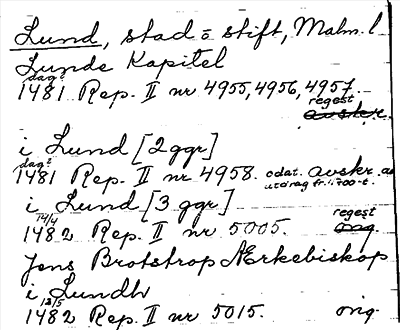 Lund, stad o stift, Malm. l
Lunde Kapitel
dag?
1481 Rep. II nr 4955, 4956, 4957.
regest
avskr.
i Lund [2 ggr]
dag?
1481 Rep. II nr 4958. odat. avskr. av
utdrag fr. 1700-t.
i Lund [3 ggr]
14/4 regest
1482 Rep. II nr 5005. orig.
Jens Brotstrop Ærkebiskop
i Lundh
13/5
1482 Rep. II nr 5015. orig.